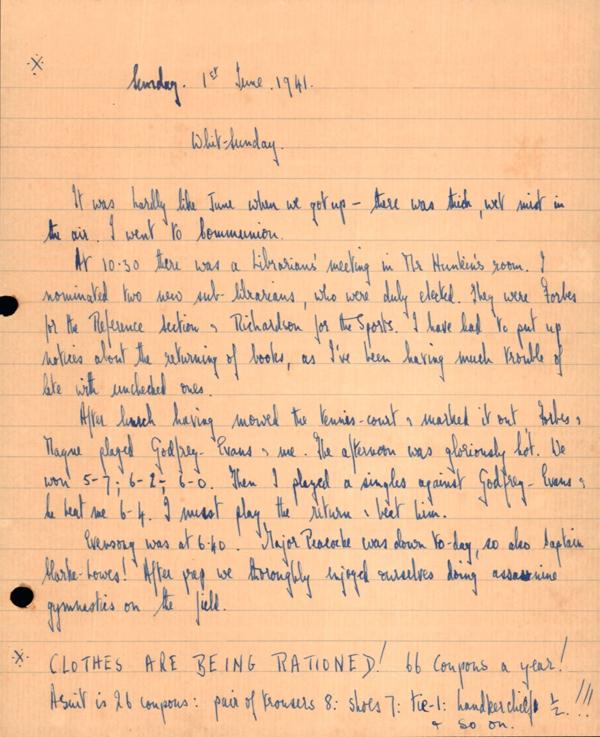 Sunday. 1st June. 1941.
Whit-Sunday.
It was hardly like June when we got up – there was thick, wet mist in
the air. I went to Communion.
At 10.30 there was a Librarians' meeting in Mr Hunkin's room. I
nominated two new sub-librarians, who were duly elected. They were Forbes
for the Reference Section & Richardson for the Sports. I have had to put up
notices about the returning of books, as I've been having much trouble of
late with unchecked ones.
After lunch having mowed the tennis-court & marked it out, Forbes &
Magne played Godfrey-Evans & me. The afternoon was gloriously hot. We
won 5-7; 6-2; 6-0. Then I played a singles against Godfrey-Evans &
he beat me 6-4. I must play the return & beat him.
Evensong was at 6.40. Major Peacocke was down to-day, so also Captain
Clarke-Lowes! After we thoroughly enjoyed ourselves doing assasnine
gymnastics on the field.
CLOTHES ARE BEING RATIONED! 66 coupons a year!
A suit is 26 coupons: pair of trousers 8: shoes 7: tie-1: handkerchief ½.!!!
& so on.